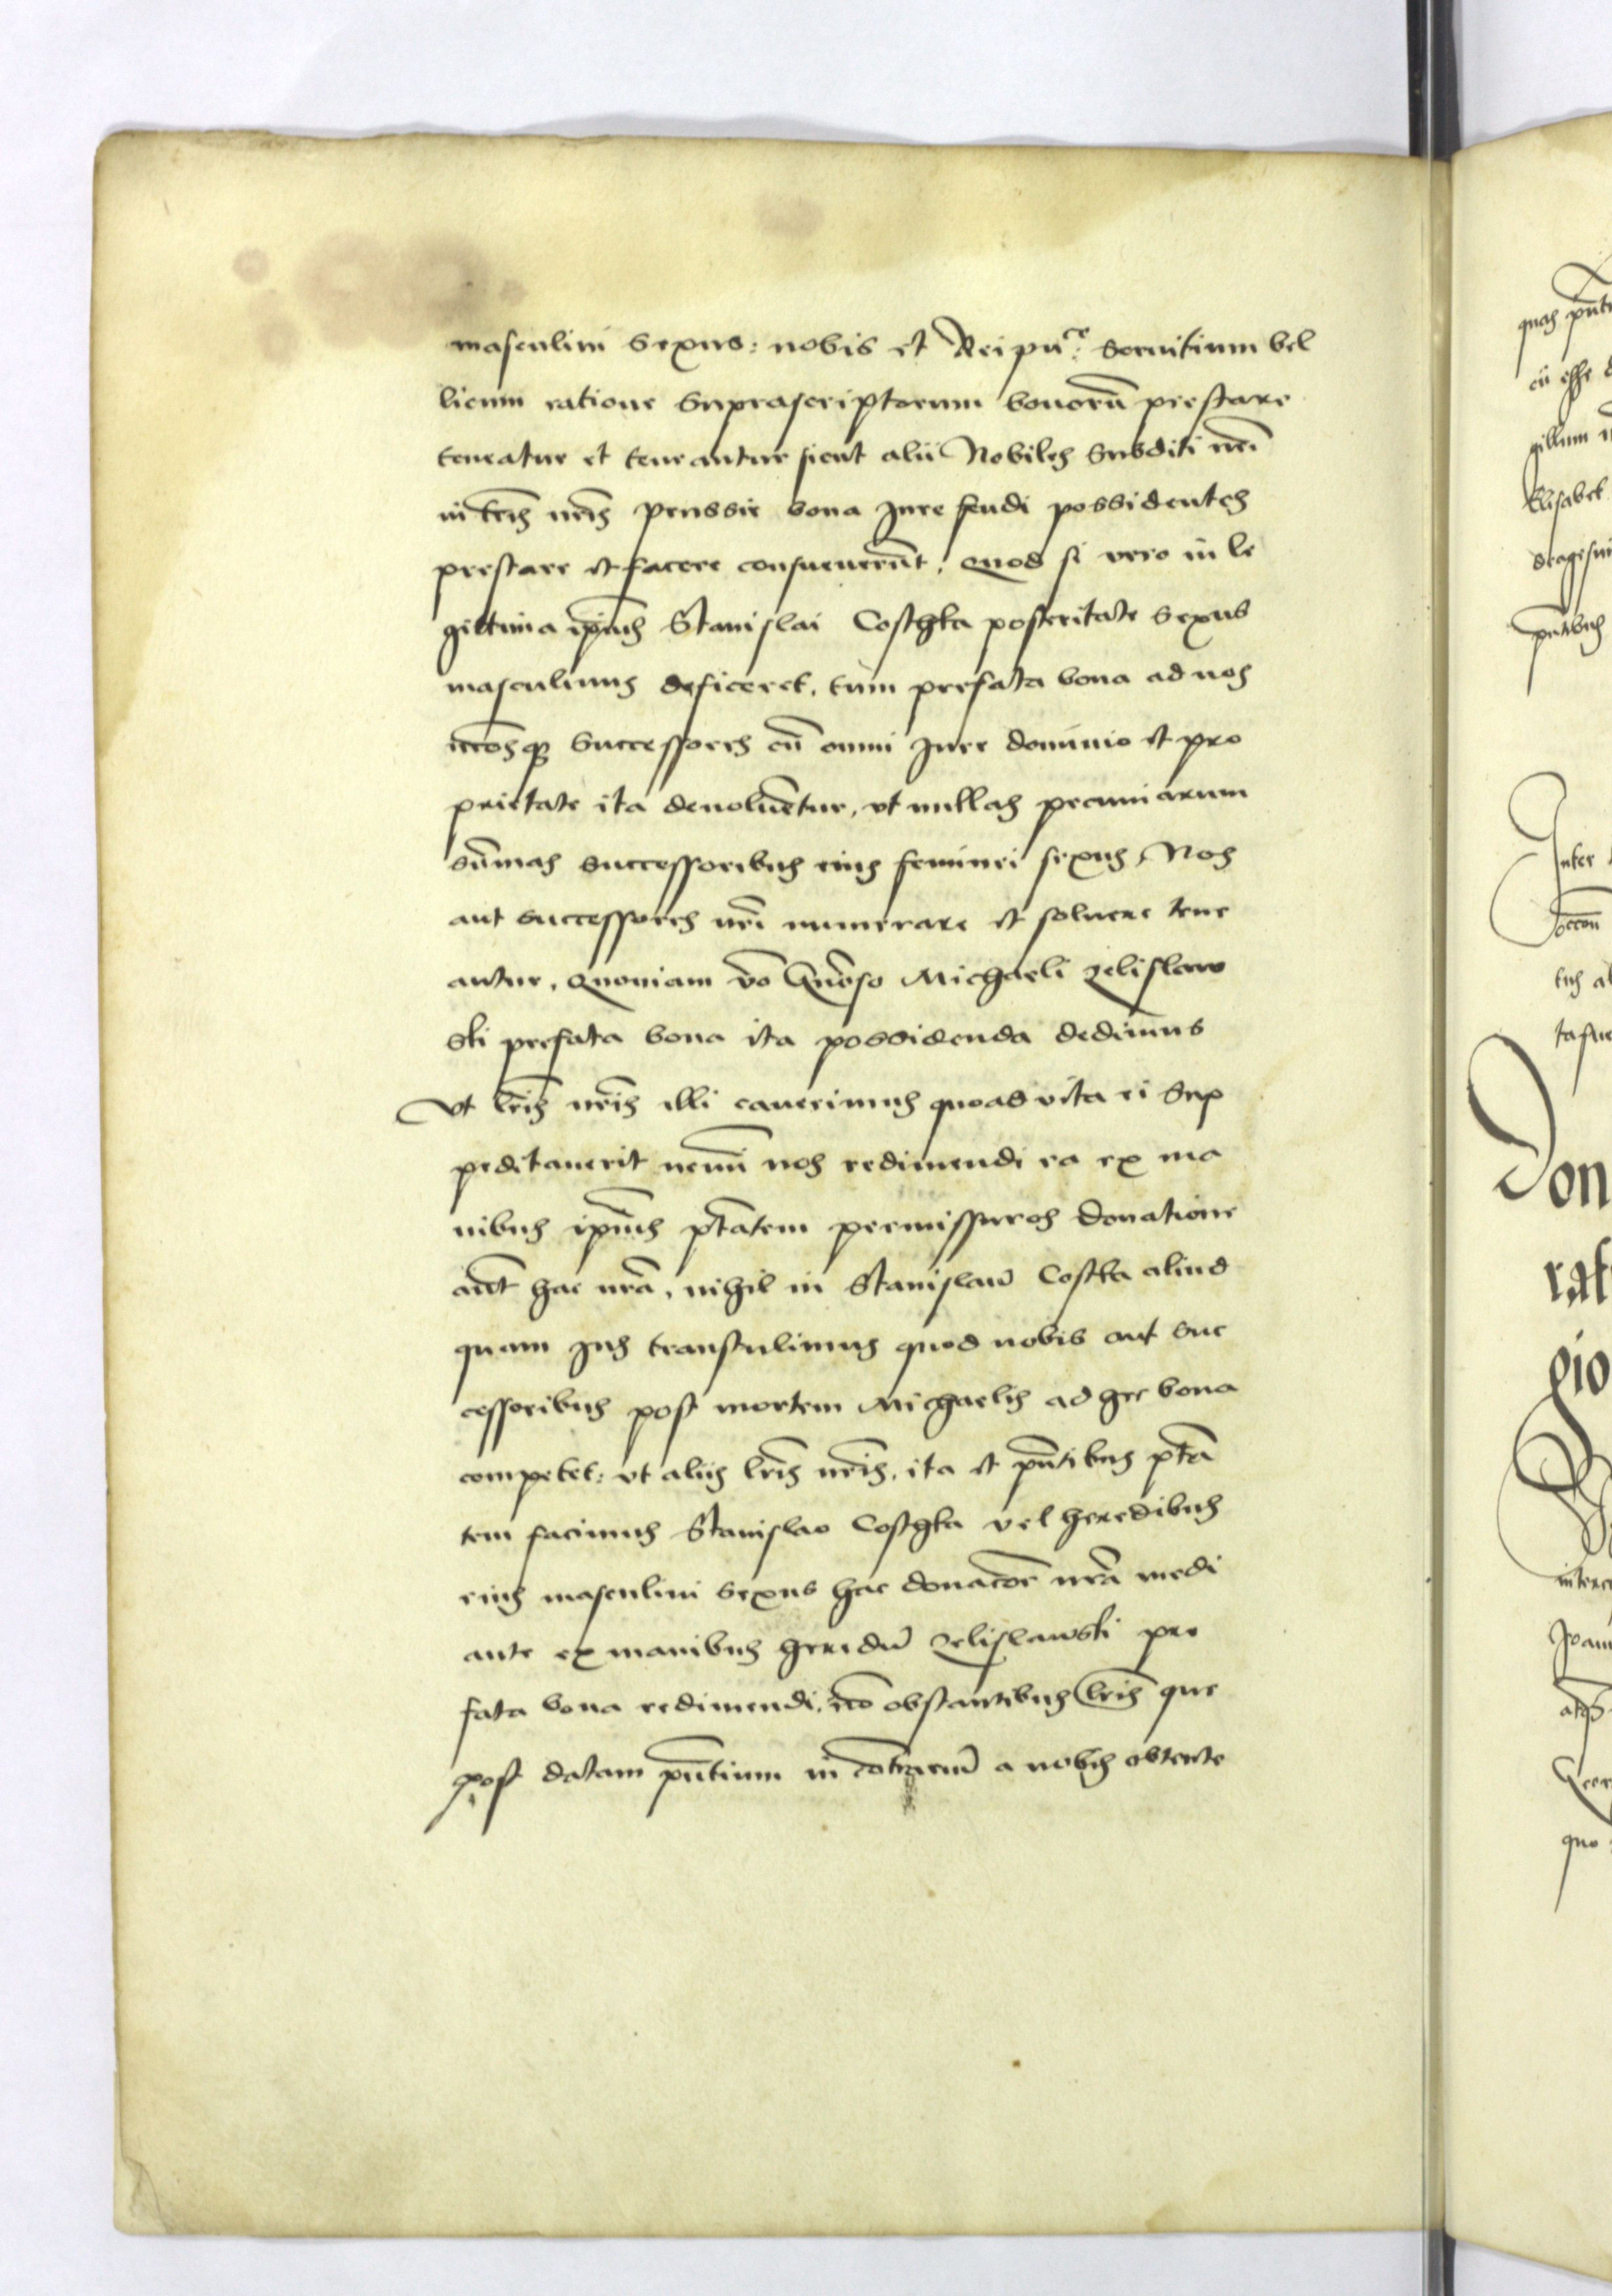 masculini sexus: nobis et Reipu^ce: servitium bel
licum ratione suprascriptorum bonorū prestare
teneatur et teneantur sicut alii Nobiles subditi nr̄i
in tr̄is nr̄is prussie bona Jure feudi possidentes
prestare et facere consueuerūt, quod si vero in le
gittima ip̄ius Stanislai Costhka posteritate sexus
masculinus deficeret, tum prefata bona ad nos
nr̄osq₃ successores cū omni Jure dominio et pro
prietate ita deuoluētur, vt nullas pecuniarum
sūmas successoribus eius feminei sexus, Nos
aut successores nr̄i numerare et soluere tene
antur, quoniam vō Gnōso Michaeli Zelislaw
ski prefata bona ita possidenda dedimus
Vt lr̄is nr̄is illi caverimus quoad vita ei sup
peditauerit nemī nos redimendi ea ex ma
nibus ip̄ius ptātem permissuros donatione
aūt hac nr̄a, nihil in Stanislaū Costka aliud
quam Jus transtulimus quod nobis aut suc
cessoribus post mortem Michaelis ad hec bona
competet: vt aliis lr̄is nr̄is, ita et pn̄tibus ptā
tem facimus Stanislao Costhka vel heredibus
eius masculini sexus hac donacōe nr̄a medi
ante ex manibus heredū Zelislawski pre
fata bona redimendi, nō obstantibus lr̄is que
post datam pn̄tium in cōtrariū a nobis obtente
quas pn̄ti
cū esse
gillum
Elisabet
pn̄tibus
Inter
Don
rat
gio
quo